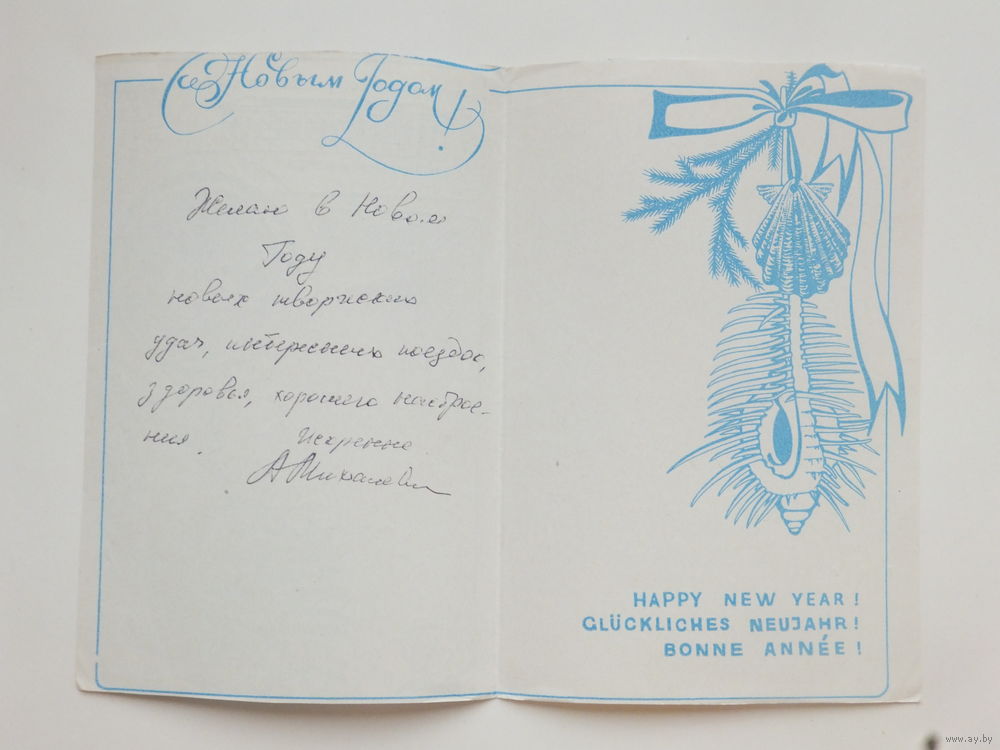 С Новым Годом!
Желаю в Новом
Году
новых творческих
удач, интересных поездок,
здоровья, хорошего настрое-
ния. Искренне
HAPPY NEW YEAR!
GLÜCKLICHES NEUJAHR!
BONNE ANNÉE!
www.ay.by